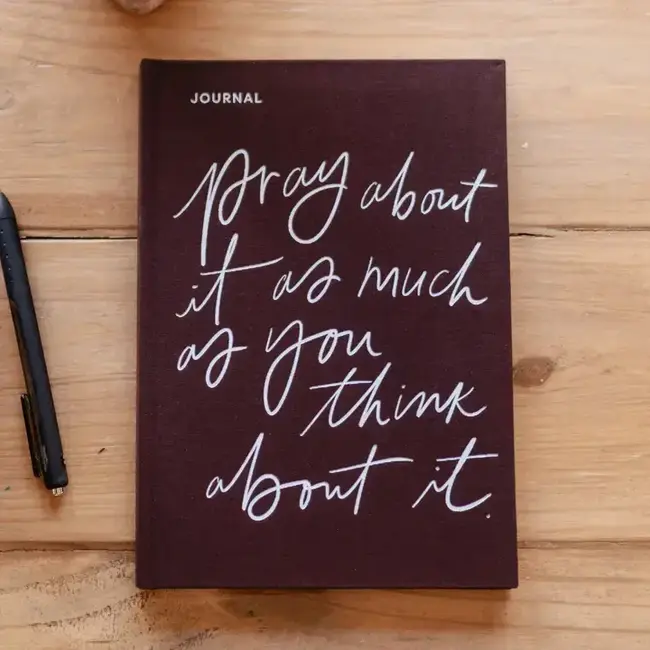 JOURNAL
pray about
it as much
as you
think
about it.